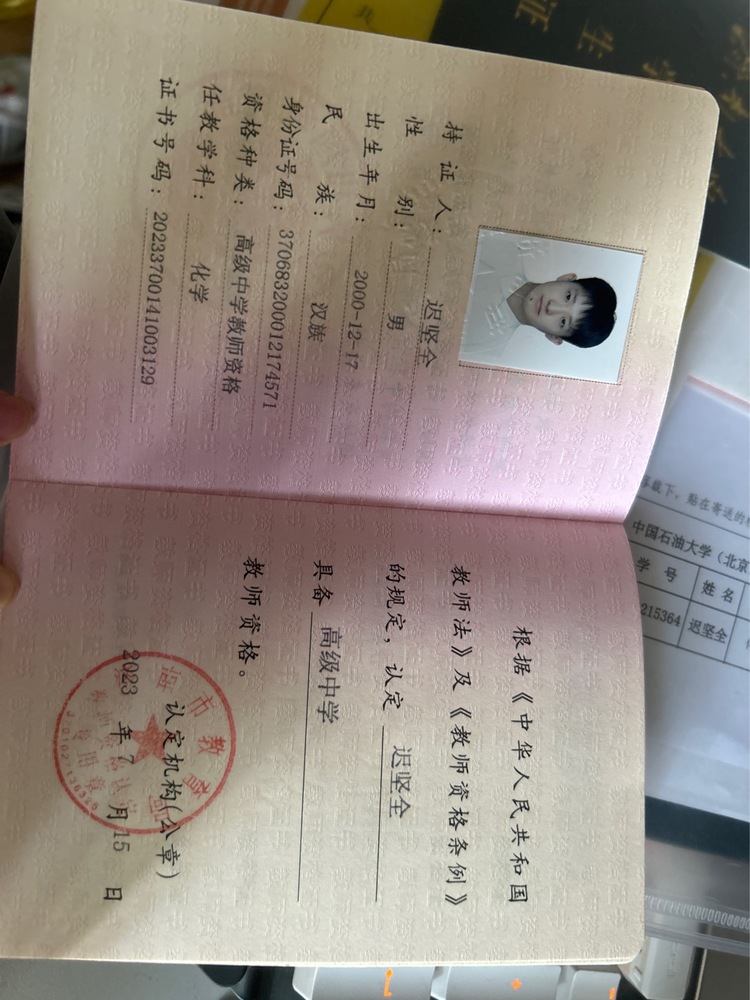 持证人：迟坚全
性别：男
出生年月：2000-12-17
民族：汉族
身份证号码：370683200012174571
资格种类：高级中学教师资格
任教学科：化学
证书号码：20233700141003129
根据《中华人民共和国
教师法》及《教师资格条例》
的规定，认定 迟坚全
具备 高级中学
教师资格。
认定机构(公章)
2023 年 7 月 15 日
市教育局
贴在寄送的
中国石油大学（北京
学号 姓名
215364 迟坚全